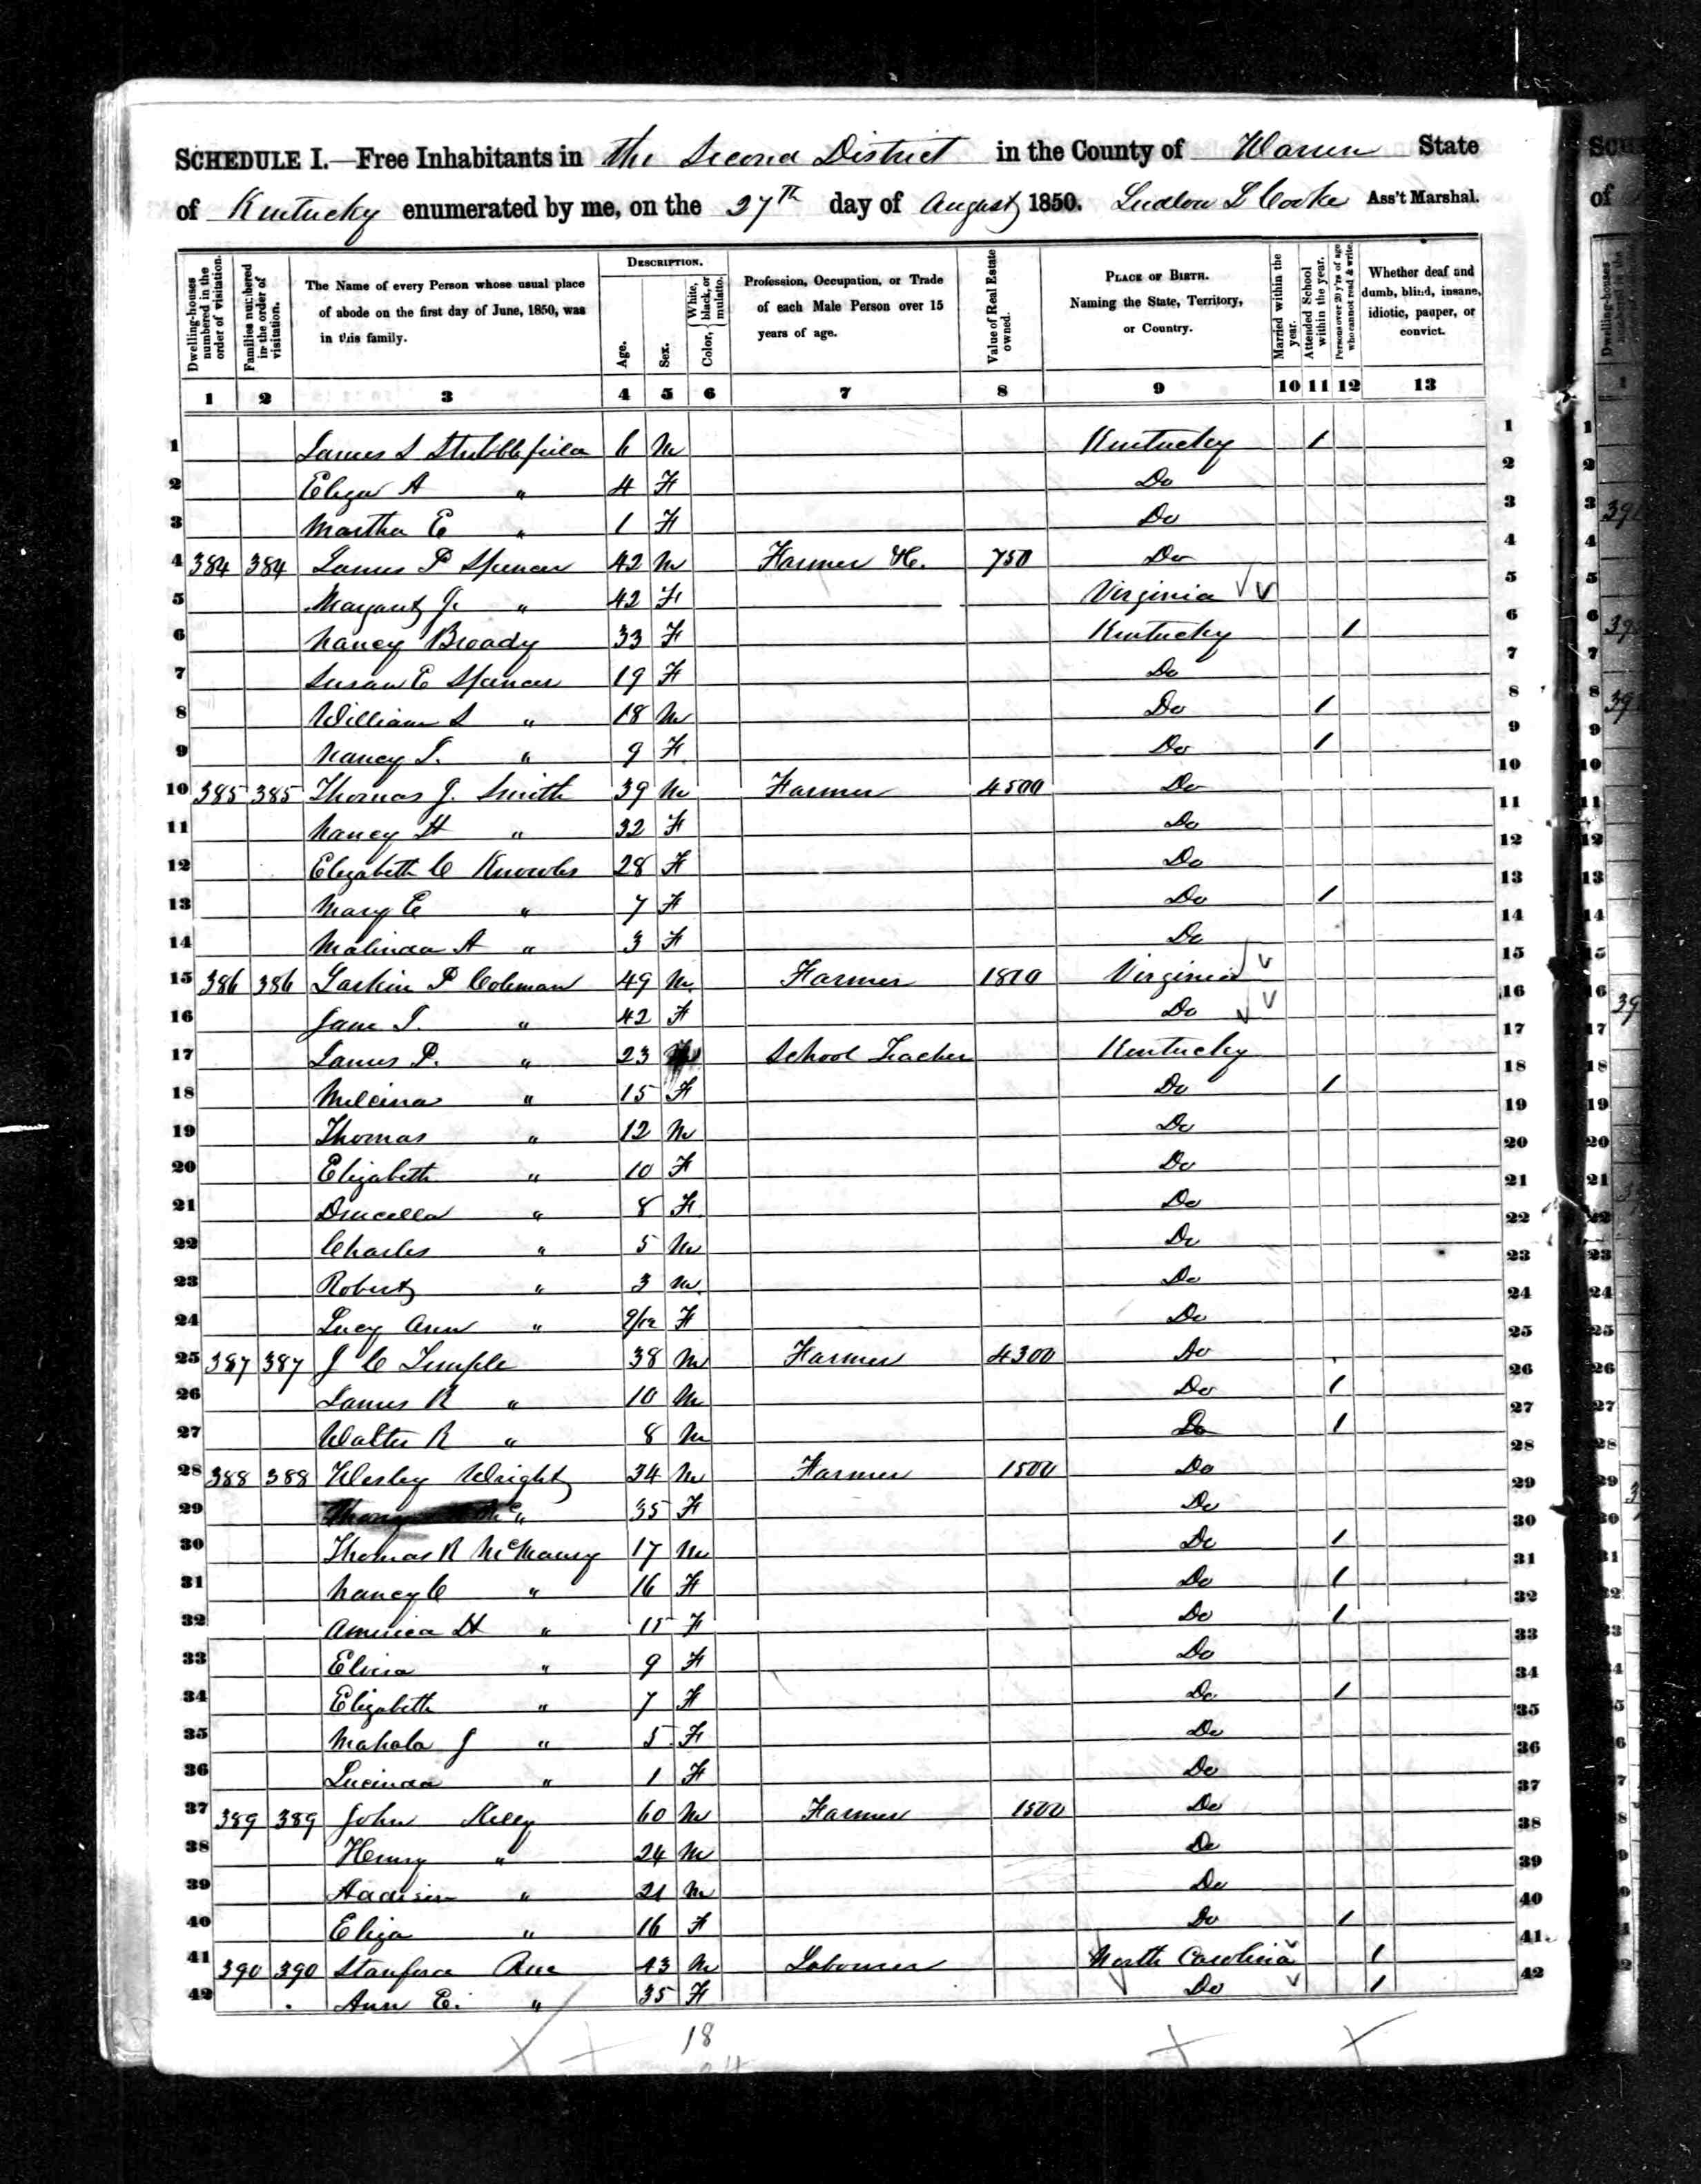 SCHEDULE I.—Free Inhabitants in the Second District in the County of Warren State
of Kentucky enumerated by me, on the 27th day of August 1850. Ludlow L Cooke Ass't Marshal.
Dwelling-houses numbered in the order of visitation.
Families numbered in the order of visitation.
The Name of every Person whose usual place of abode on the first day of June, 1850, was in this family.
DESCRIPTION.
Age.
Sex.
Color, White, black, or mulatto.
Profession, Occupation, or Trade of each Male Person over 15 years of age.
Value of Real Estate owned.
PLACE OF BIRTH. Naming the State, Territory, or Country.
Married within the year.
Attended School within the year.
Persons over 20 y'rs of age who cannot read & write.
Whether deaf and dumb, blind, insane, idiotic, pauper, or convict.
1 2 3 4 5 6 7 8 9 10 11 12 13
1 James S Stubblefield 6 M Kentucky 1 1
2 Eliza A " 4 F Do 2
3 Martha E " 1 F Do 3
4 384 384 James P Spencer 42 M Farmer &c. 750 Do 4
5 Margaret J. " 42 F Virginia 5
6 Nancy Broady 33 F Kentucky 1 6
7 Susan E Spencer 19 F Do 7
8 William S " 18 M Do 1 8
9 Nancy T. " 9 F Do 1 9
10 385 385 Thomas J. Smith 39 M Farmer 4500 Do 10
11 Nancy H " 32 F Do 11
12 Elizabeth C Knowles 28 F Do 12
13 Mary E " 7 F Do 1 13
14 Malinda A " 3 F Do 14
15 386 386 Larkin P Coleman 49 M Farmer 1800 Virginia 15
16 Jane T. " 42 F Do 16
17 James P. " 23 School Teacher Kentucky 17
18 " 15 F Do 1 18
19 Thomas " 12 M Do 19
20 Elizabeth " 10 F Do 20
21 Drucella " 8 F Do 21
22 Charles " 5 M Do 22
23 Robert " 3 M Do 23
24 Lucy Ann " 9/12 F Do 24
25 387 387 J C Temple 38 M Farmer 4300 Do 25
26 James R " 10 M Do 1 26
27 Walter R " 8 M Do 1 27
28 388 388 Wesley Wright 34 M Farmer 1500 Do 28
29 " 35 F Do 29
30 Thomas R 17 M Do 1 30
31 Nancy C " 16 F Do 1 31
32 America H " 15 F Do 1 32
33 " 9 F Do 33
34 Elizabeth " 7 F Do 1 34
35 Mahala J " 5 F Do 35
36 Lucinda " 1 F Do 36
37 389 389 John 60 M Farmer 1500 Do 37
38 Henry " 24 M Do 38
39 Addison " 21 M Do 39
40 Eliza " 16 F Do 1 40
41 390 390 Stanford 43 M Laborer North Carolina 1 41
42 Ann E. " 35 F Do 1 42
18